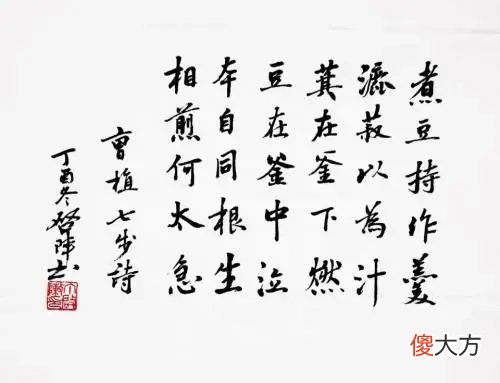 煮豆持作羹
漉菽以為汁
萁在釜下燃
豆在釜中泣
本自同根生
相煎何太急
曹植七步詩
丁酉冬啓陣书
傻大方